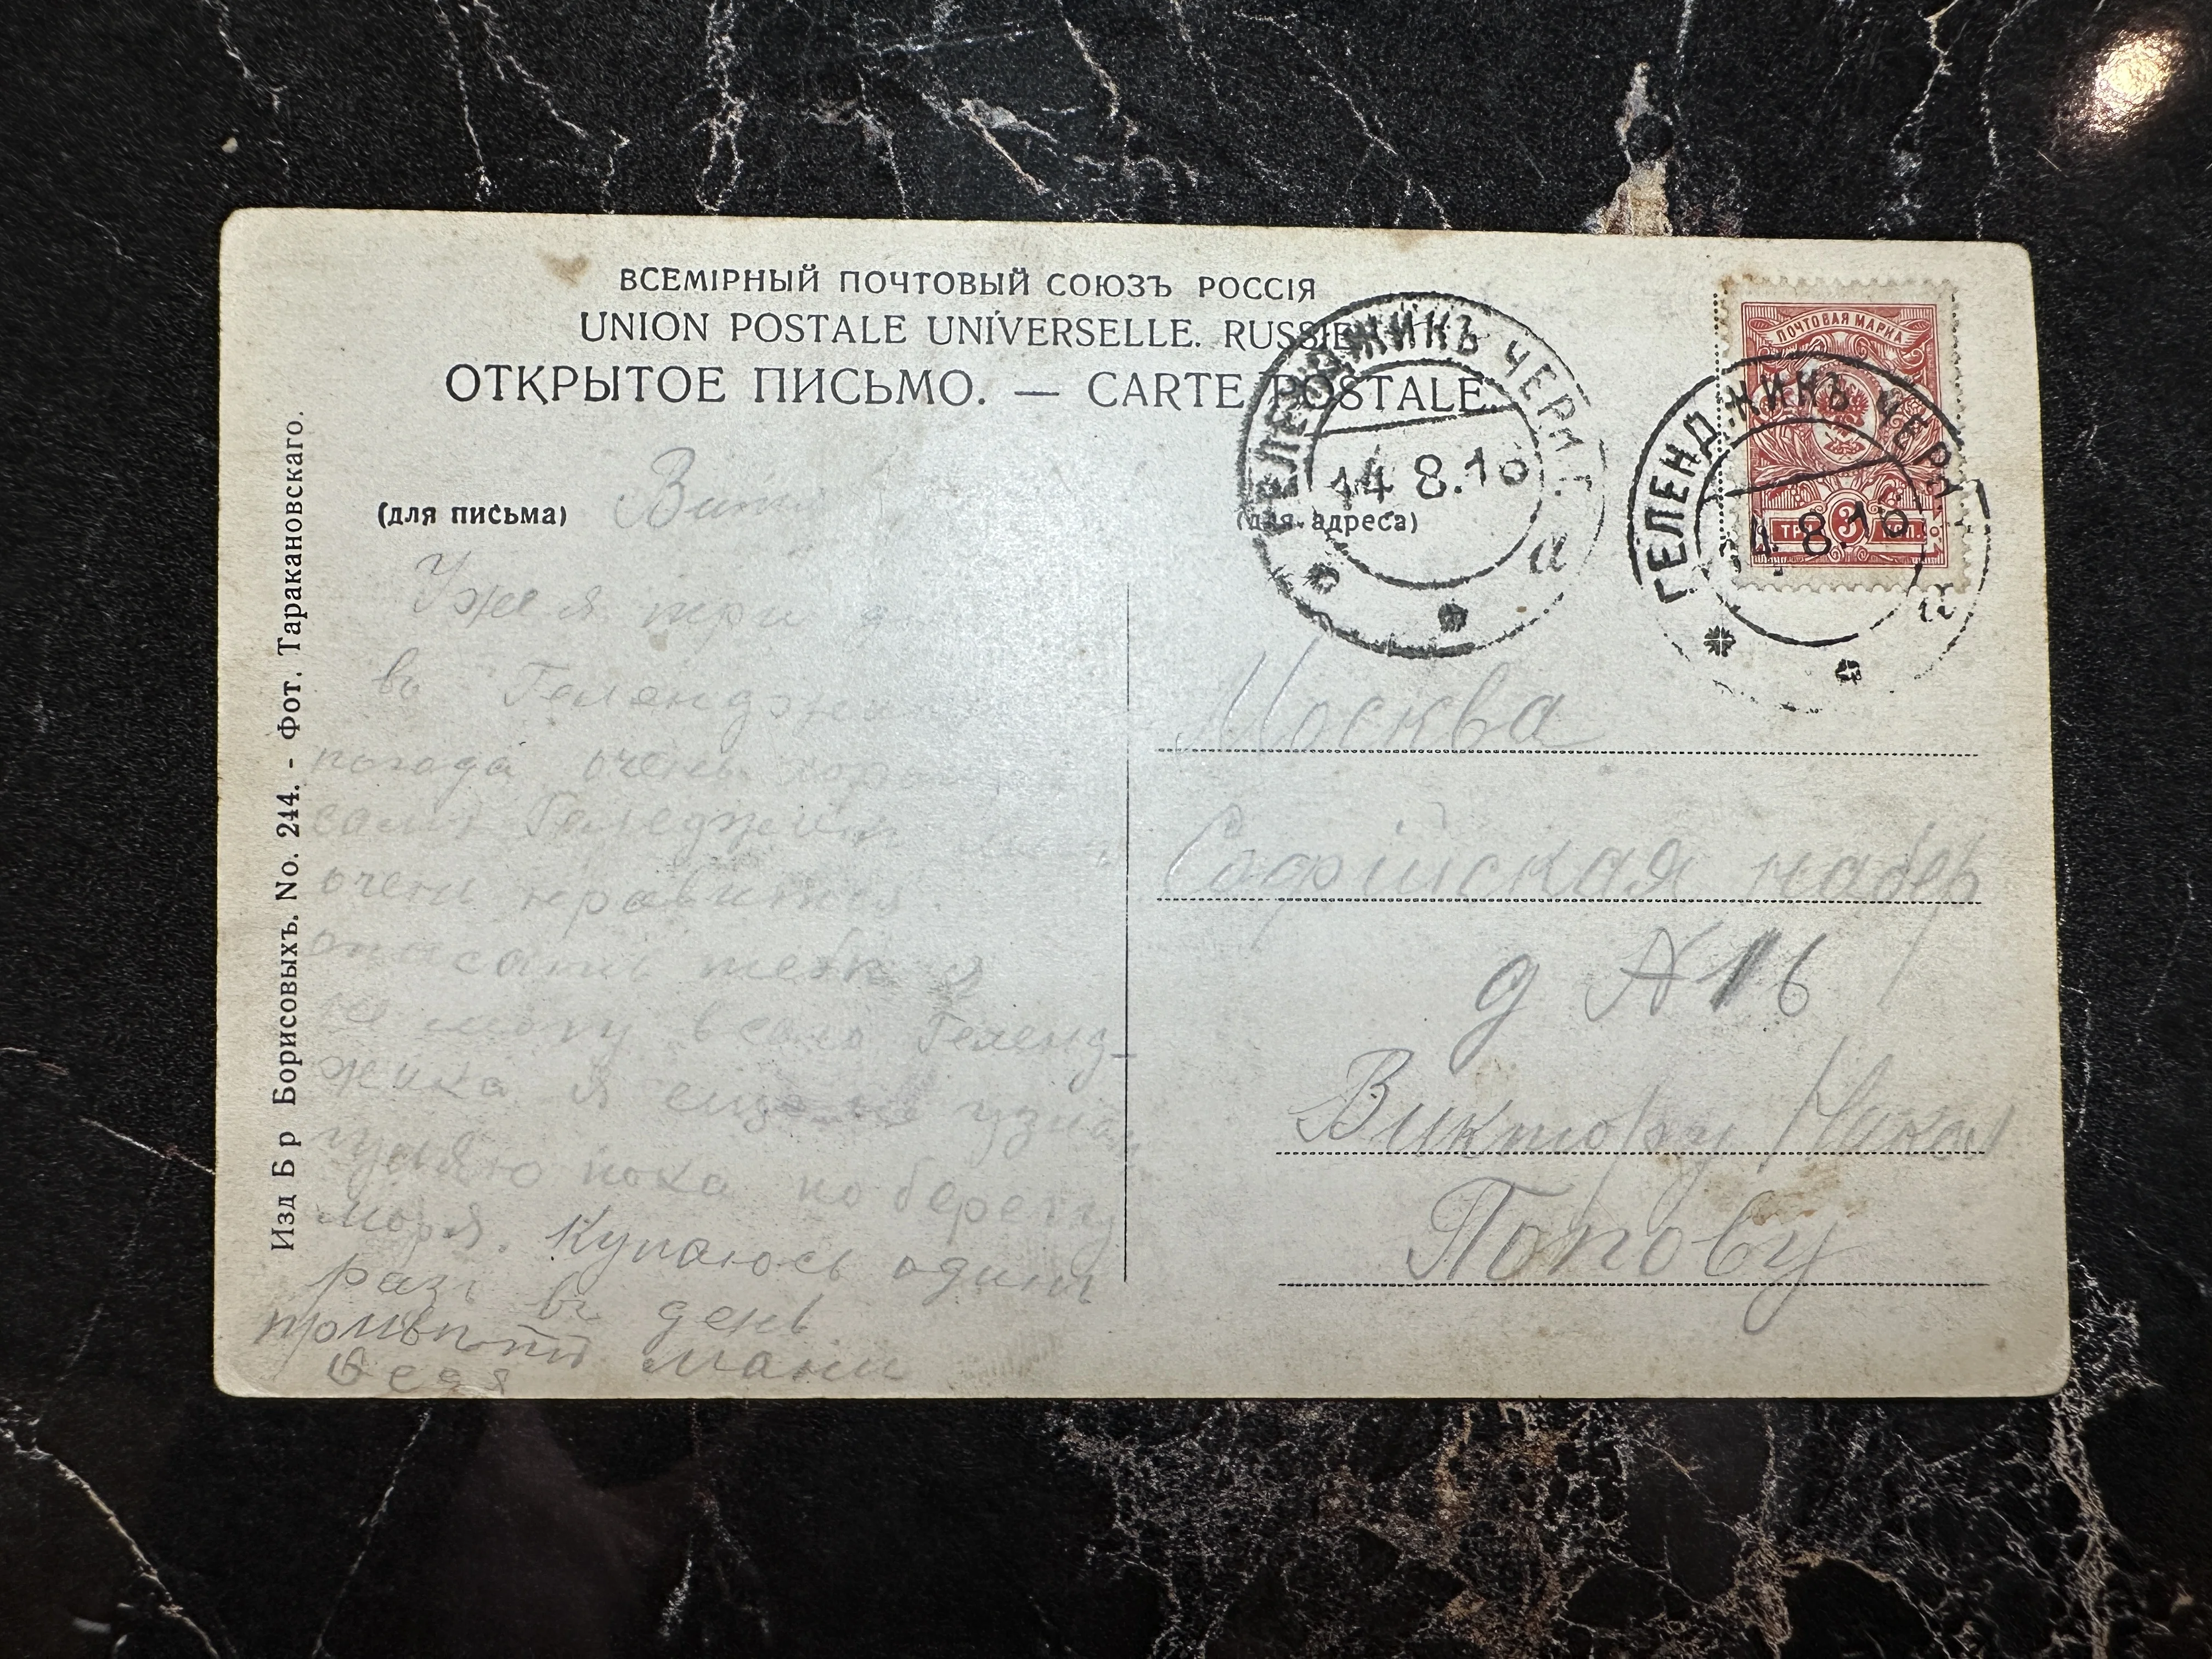 ВСЕМІРНЫЙ ПОЧТОВЫЙ СОЮЗЪ РОССІЯ
UNION POSTALE UNIVERSELLE. RUSSIE
ОТКРЫТОЕ ПИСЬМО. — CARTE POSTALE.
ПОЧТОВАЯ МАРКА
3
ГЕЛЕНДЖИКЪ ЧЕРН.
14 8.16
а
ГЕЛЕНДЖИКЪ ЧЕРН.
14 8.16
а
(для письма)
(для адреса)
Изд Б р Борисовыхъ. No. 244. - Фот. Таракановскаго.
Уже я три
въ Геленджик
погода очень хорош
самъ Геленджик мне
очень нравится.
описать тебе я
не могу всего Геленд-
жика я еще не узнал
гуляю пока по берегу
моря. Купаюсь один
разъ въ день.
привет мани
Федя
Москва
Софийская набер
д № 16
Виктору Никол
Попову